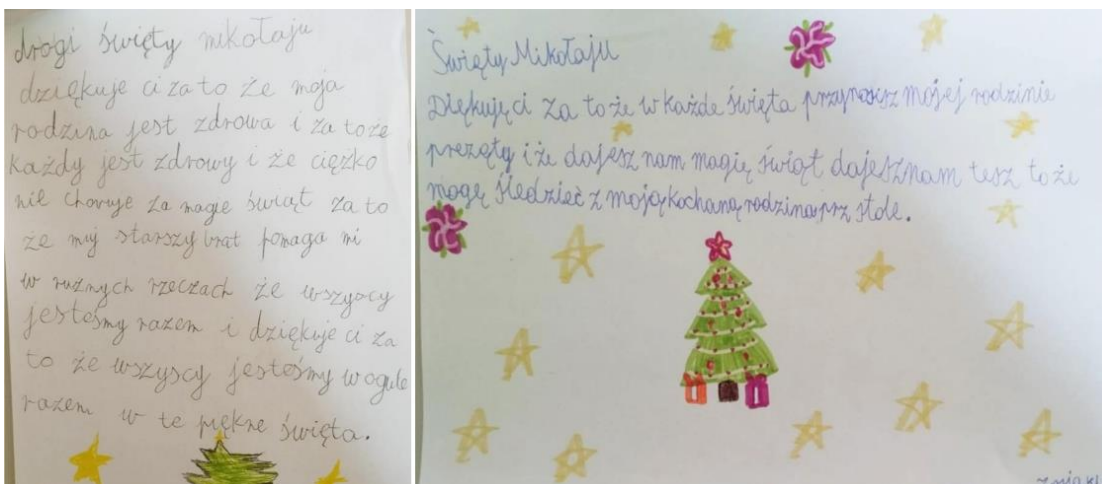 drogi święty mikołaju
dziękuje ci za to że moja
rodzina jest zdrowa i za to że
każdy jest zdrowy i że ciężko
nie choruje za magie świąt za to
że muj starszy brat pomaga mi
w rużnych rzeczach że wszyscy
jesteśmy razem i dziękuje ci za
to że wszyscy jesteśmy wogule
razem w te piękne święta.
Święty Mikołaju
Diękuję ci za to że w każde święta przynosisz mojej rodzinie
prezęty i że dajesz nam magię świąt dajesz nam tesz to że
mogę śiedzieć z moją kochaną rodzina prz stole.